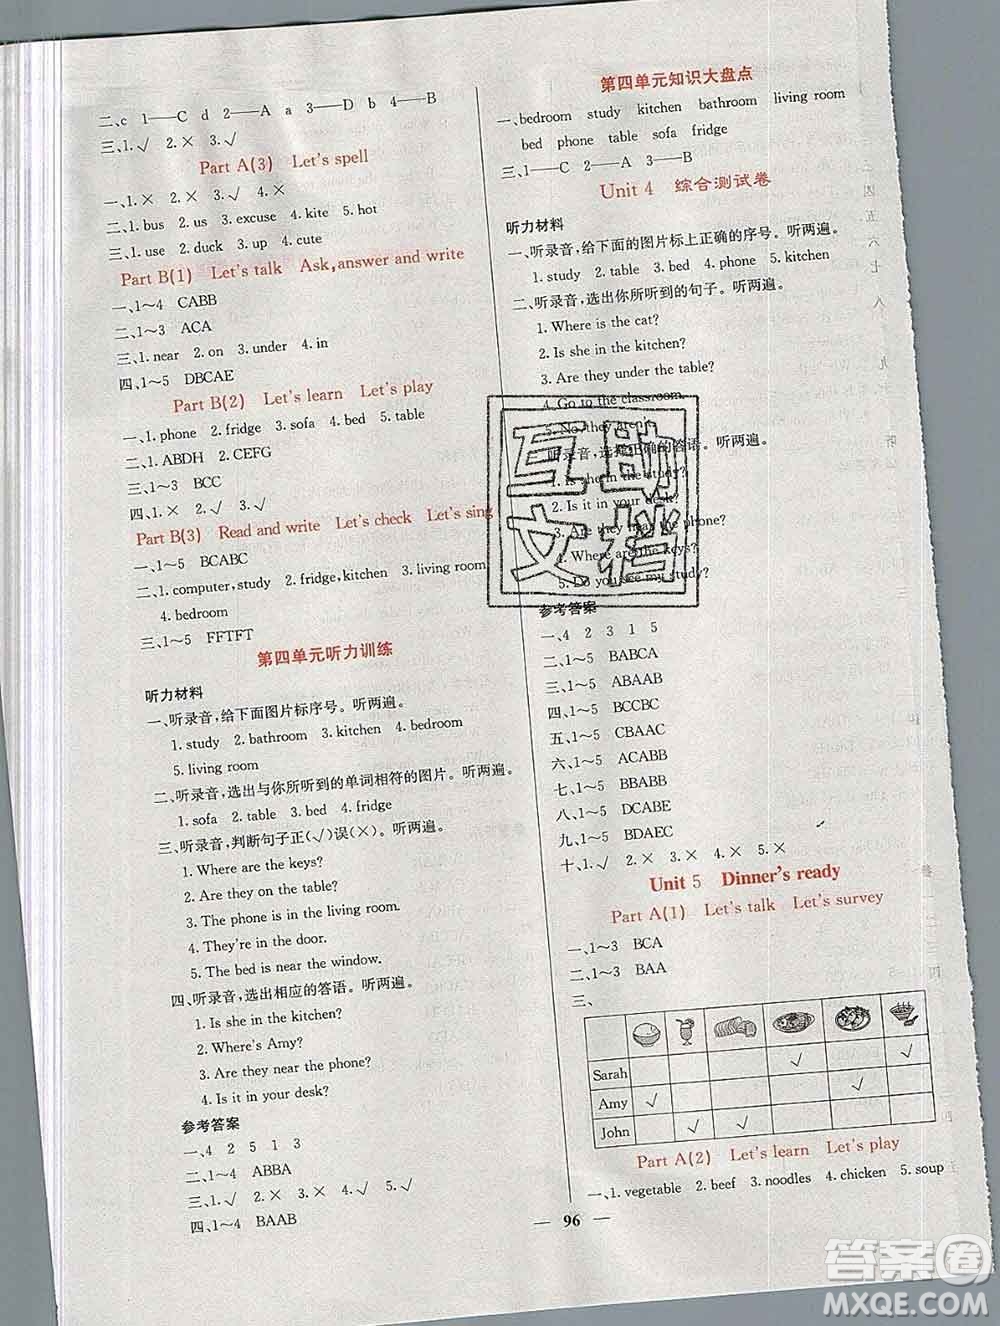 二、c 1——C d 2——A a 3——D b 4——B
三、1.√ 2.× 3.√
Part A(3) Let's spell
一、1.× 2.× 3.√ 4.×
二、1. bus 2. us 3. excuse 4. kite 5. hot
三、1. use 2. duck 3. up 4. cute
Part B(1) Let's talk Ask, answer and write
一、1～4 CABB
二、1～3 ACA
三、1. near 2. on 3. under 4. in
四、1～5 DBCAE
Part B(2) Let's learn Let's play
一、1. phone 2. fridge 3. sofa 4. bed 5. table
二、1. ABDH 2. CEFG
三、1～3 BCC
四、1.√ 2.× 3.√
Part B(3) Read and write Let's check Let's sing
一、1～5 BCABC
二、1. computer, study 2. fridge, kitchen 3. living room
4. bedroom
三、1～5 FFTFT
第四单元听力训练
听力材料
一、听录音,给下面图片标序号。听两遍。
1. study 2. bathroom 3. kitchen 4. bedroom
5. living room
二、听录音,选出与你所听到的单词相符的图片。听两遍。
1. sofa 2. table 3. bed 4. fridge
三、听录音,判断句子正(√)误(×)。听两遍。
1. Where are the keys?
2. Are they on the table?
3. The phone is in the living room.
4. They're in the door.
5. The bed is near the window.
四、听录音,选出相应的答语。听两遍。
1. Is she in the kitchen?
2. Where's Amy?
3. Are they near the phone?
4. Is it in your desk?
参考答案
一、4 2 5 1 3
二、1～4 ABBA
三、1.√ 2.× 3.× 4.√ 5.√
四、1～4 BAAB
第四单元知识大盘点
一、bedroom study kitchen bathroom living room
bed phone table sofa fridge
三、1——C 2——A 3——B
Unit 4 综合测试卷
听力材料
一、听录音,给下面的图片标上正确的序号。听两遍。
1. study 2. table 3. bed 4. phone 5. kitchen
二、听录音,选出你所听到的句子。听两遍。
1. Where is the cat?
2. Is she in the kitchen?
3. Are they under the table?
4. Go to the classroom.
5. No, they aren't.
三、听录音,选择正确的答语。听两遍。
1. Is she in the study?
2. Is it in your desk?
3. Are they near the phone?
4. Where are the keys?
5. Do you see my study?
参考答案
一、4 2 3 1 5
二、1～5 BABCA
三、1～5 ABAAB
四、1～5 BCCBC
五、1～5 CBAAC
六、1～5 ACABB
七、1～5 BBABB
八、1～5 DCABE
九、1～5 BDAEC
十、1.√ 2.× 3.× 4.× 5.×
Unit 5 Dinner's ready
Part A(1) Let's talk Let's survey
一、1～3 BCA
二、1～3 BAA
三、
Sarah √ √
Amy √ √
John √ √
Part A(2) Let's learn Let's play
一、1. vegetable 2. beef 3. noodles 4. chicken 5. soup
— 96 —
互助
文档
答案圈
MXQE.COM